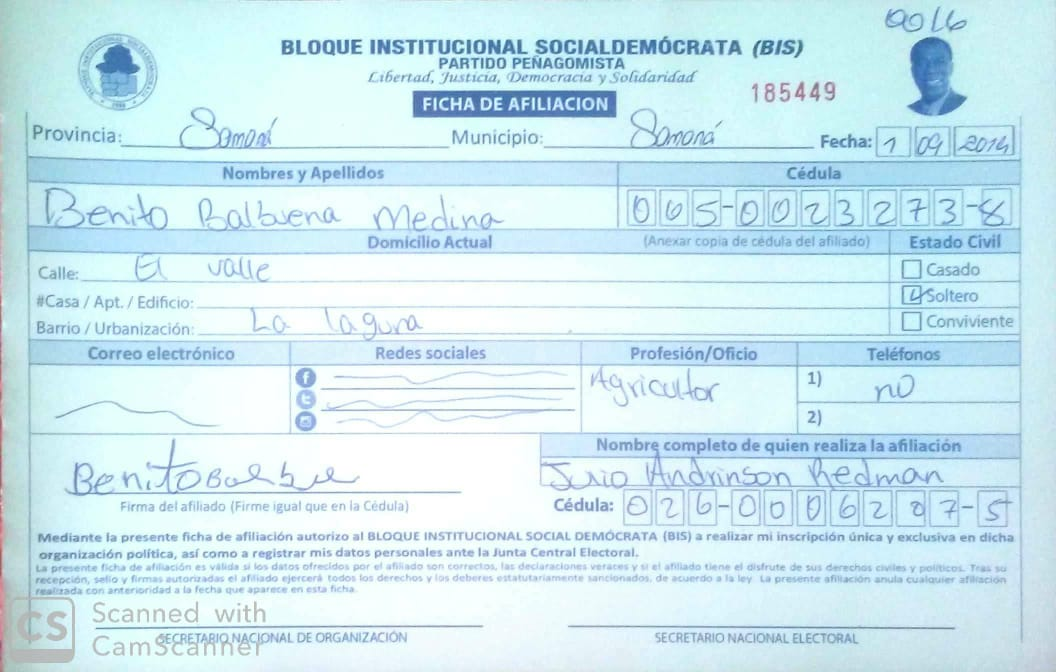 0016
BLOQUE INSTITUCIONAL SOCIALDEMÓCRATA (BIS)
PARTIDO PEÑAGOMISTA
Libertad, Justicia, Democracia y Solidaridad
185449
FICHA DE AFILIACION
Provincia: Samaná Municipio: Samaná Fecha: 1 09 2014
Nombres y Apellidos Cédula
Benito Balbuena Medina 065-0023273-8
Domicilio Actual (Anexar copia de cédula del afiliado) Estado Civil
Calle: El valle Casado
#Casa / Apt. / Edificio: Soltero
Barrio / Urbanización: La laguna Conviviente
Correo electrónico Redes sociales Profesión/Oficio Teléfonos
Agricultor 1) no
2)
Nombre completo de quien realiza la afiliación
Benito Andrinson Redman
Firma del afiliado (Firme igual que en la Cédula) Cédula: 026-0006287-5
Mediante la presente ficha de afiliación autorizo al BLOQUE INSTITUCIONAL SOCIAL DEMÓCRATA (BIS) a realizar mi inscripción única y exclusiva en dicha
organización política, así como a registrar mis datos personales ante la Junta Central Electoral.
La presente ficha de afiliación es válida si los datos ofrecidos por el afiliado son correctos, las declaraciones veraces y si el afiliado tiene el disfrute de sus derechos civiles y políticos. Tras su
recepción, sello y firmas autorizadas el afiliado ejercerá todos los derechos y los deberes estatutariamente sancionados, de acuerdo a la ley. La presente afiliación anula cualquier afiliación
realizada con anterioridad a la fecha que aparece en esta ficha.
CS Scanned with
CamScanner
SECRETARIO NACIONAL DE ORGANIZACIÓN SECRETARIO NACIONAL ELECTORAL